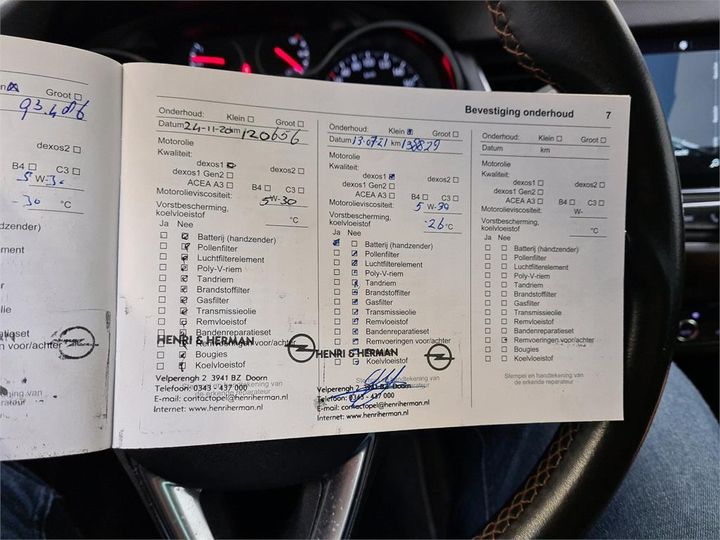 Groot
93.486
dexos2
B4 C3
5 W-30
-30 °C
Bevestiging onderhoud 7
Onderhoud: Klein Groot
Datum 24-11-20 km 120656
Motorolie
Kwaliteit:
dexos1 dexos2
dexos1 Gen2
ACEA A3 B4 C3
Motorolieviscositeit: 5W-30
Vorstbescherming,
koelvloeistof °C
Ja Nee
Batterij (handzender)
Pollenfilter
Luchtfilterelement
Poly-V-riem
Tandriem
Brandstoffilter
Gasfilter
Transmissieolie
Remvloeistof
Bandenreparatieset
Remvoeringen voor/achter
Bougies
Koelvloeistof
HENRI & HERMAN
Velperengh 2 3941 BZ Doorn
Telefoon: 0343 - 437 000
E-mail: contactopel@henriherman.nl
Internet: www.henriherman.nl
Onderhoud: Klein Groot
Datum 13-0721 km 138829
Motorolie
Kwaliteit:
dexos1 dexos2
dexos1 Gen2
ACEA A3 B4 C3
Motorolieviscositeit: 5 W-30
Vorstbescherming,
koelvloeistof -26 °C
Ja Nee
Batterij (handzender)
Pollenfilter
Luchtfilterelement
Poly-V-riem
Tandriem
Brandstoffilter
Gasfilter
Transmissieolie
Remvloeistof
Bandenreparatieset
Remvoeringen voor/achter
Bougies
Koelvloeistof
HENRI & HERMAN
Velperengh 2 3941 BZ Doorn
Telefoon: 0343 - 437 000
E-mail: contactopel@henriherman.nl
Internet: www.henriherman.nl
Onderhoud: Klein Groot
Datum km
Motorolie
Kwaliteit:
dexos1 dexos2
dexos1 Gen2
ACEA A3 B4 C3
Motorolieviscositeit: W-
Vorstbescherming,
koelvloeistof °C
Ja Nee
Batterij (handzender)
Pollenfilter
Luchtfilterelement
Poly-V-riem
Tandriem
Brandstoffilter
Gasfilter
Transmissieolie
Remvloeistof
Bandenreparatieset
Remvoeringen voor/achter
Bougies
Koelvloeistof
Stempel en handtekening van
de erkende reparateur